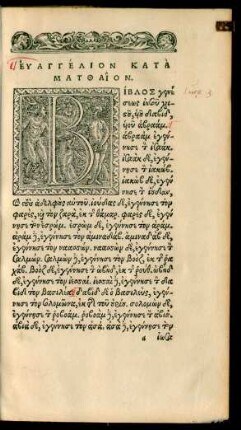 ΕΥΑΓΓΕΛΙΟΝ ΚΑΤΑ
ΜΑΤΘΑΙΟΝ.
ΒΙΒΛΟΣ γενέ
σεως ἰησοῦ χρι
στοῦ, υἱοῦ δαβίδ,
υἱοῦ ἀβραάμ.
ἀβραὰμ ἐγέν
νησε τὸν ἰσαάκ.
ἰσαὰκ δὲ, ἐγέν
νησε τὸν ἰακώβ.
ἰακὼβ δὲ, ἐγέν
νησε τὸν ἰούδαν,
καὶ τοὺς ἀδελφοὺς αὐτοῦ. ἰούδας δὲ, ἐγέννησε τὸν
φαρὲς, καὶ τὸν ζαρὰ, ἐκ τῆς θάμαρ. φαρὲς δὲ, ἐγέν
νησε τὸν ἐσρώμ. ἐσρὼμ δὲ, ἐγέννησε τὸν ἀράμ.
ἀρὰμ δὲ, ἐγέννησε τὸν ἀμιναδάβ. ἀμιναδὰβ δὲ,
ἐγέννησε τὸν ναασσών. ναασσὼν δὲ, ἐγέννησε τὸν
σαλμών. σαλμὼν δὲ, ἐγέννησε τὸν βοὸζ, ἐκ τῆς ῥα
χάβ. βοὸζ δὲ, ἐγέννησε τὸν ὠβὴδ, ἐκ τῆς ῥούθ. ὠβὴδ
δὲ, ἐγέννησε τὸν ἰεσσαί. ἰεσσαὶ δὲ, ἐγέννησε τὸν δα
βὶδ τὸν βασιλέα. δαβὶδ δὲ ὁ βασιλεὺς, ἐγέν
νησε τὸν σολομῶνα, ἐκ τῆς τοῦ οὐρίου. σολομὼν δὲ,
ἐγέννησε τὸν ῥοβοάμ. ῥοβοὰμ δὲ, ἐγέννησε τὸν ἀβιά.
ἀβιὰ δὲ, ἐγέννησε τὸν ἀσά. ἀσὰ δὲ, ἐγέννησε τὸν
a ἰωσα